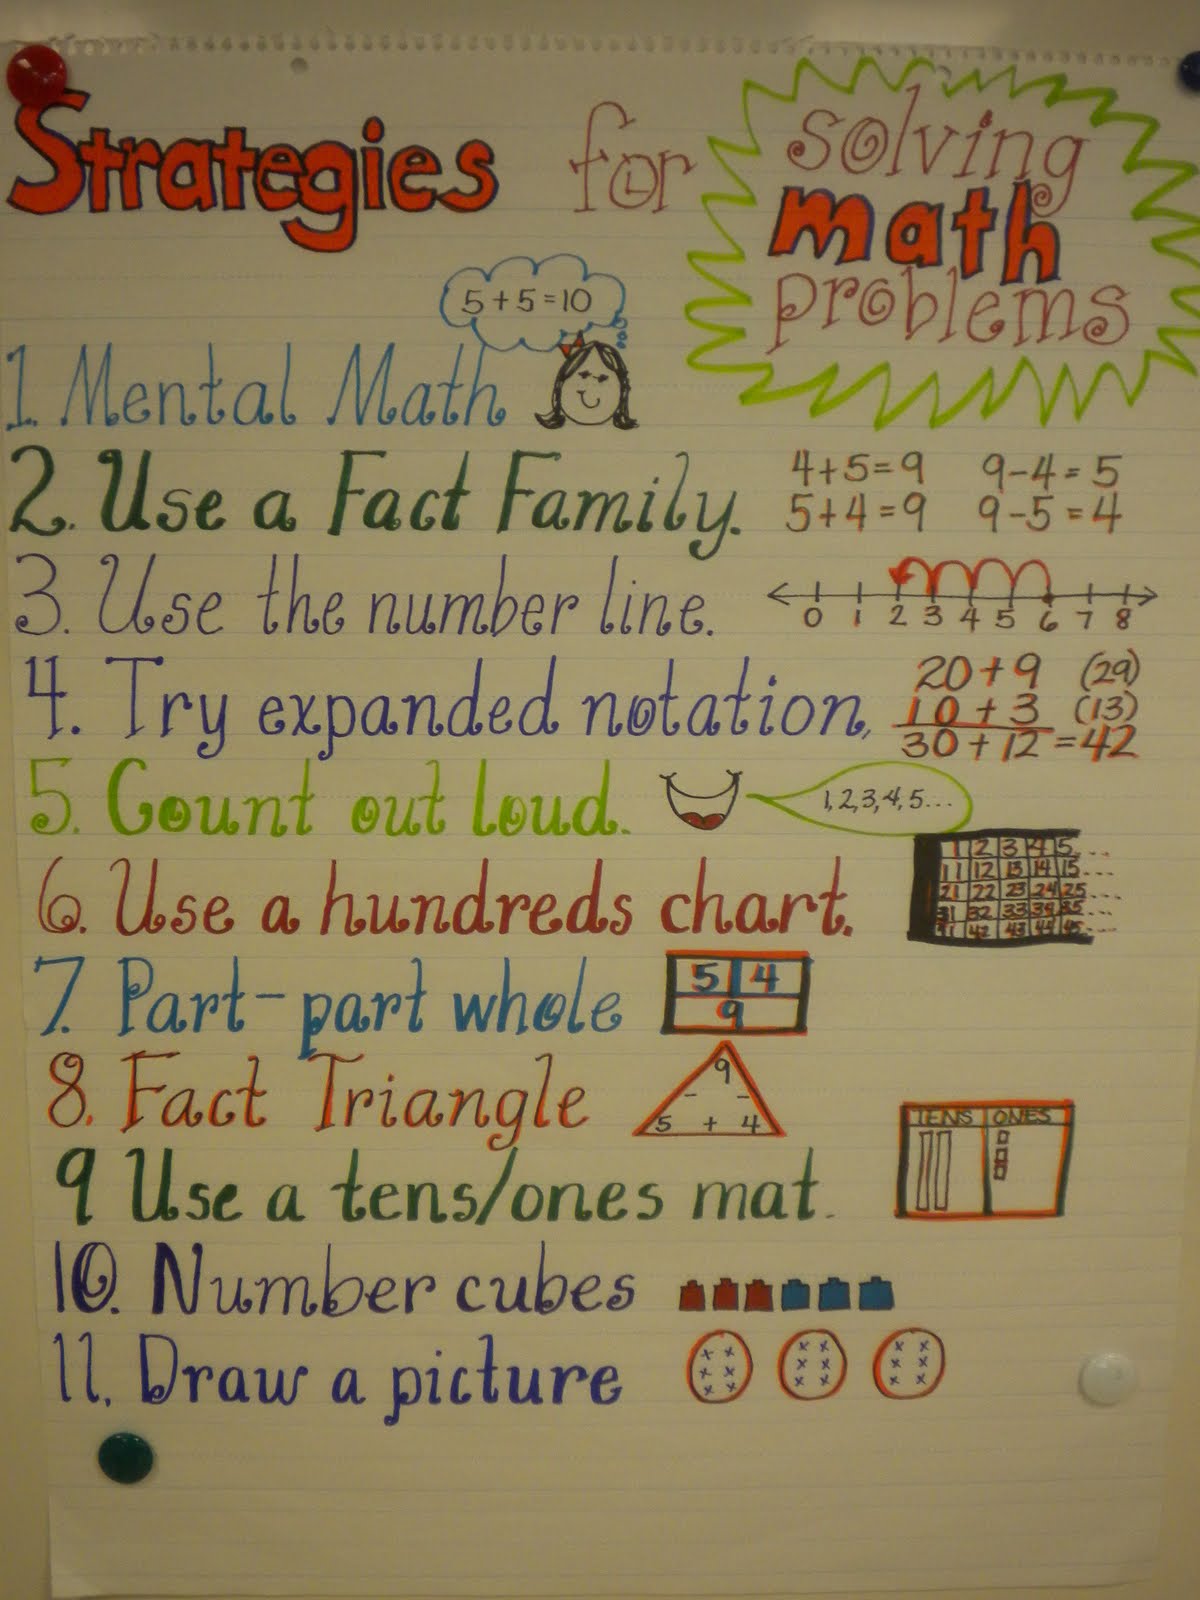 Strategies for solving math problems
5+5=10
1. Mental Math
2. Use a Fact Family.
4+5=9 9-4=5
5+4=9 9-5=4
3. Use the number line.
0 1 2 3 4 5 6 7 8
4. Try expanded notation,
20+9 (29)
10+3 (13)
30+12=42
5. Count out loud.
1,2,3,4,5...
6. Use a hundreds chart.
1 2 3 4 5...
11 12 13 14 15...
21 22 23 24 25...
31 32 33 34 35...
41 42 43 44 45...
7. Part-part whole
5 4
9
8. Fact Triangle
9
- -
5 + 4
9 Use a tens/ones mat.
TENS ONES
10. Number cubes
11. Draw a picture